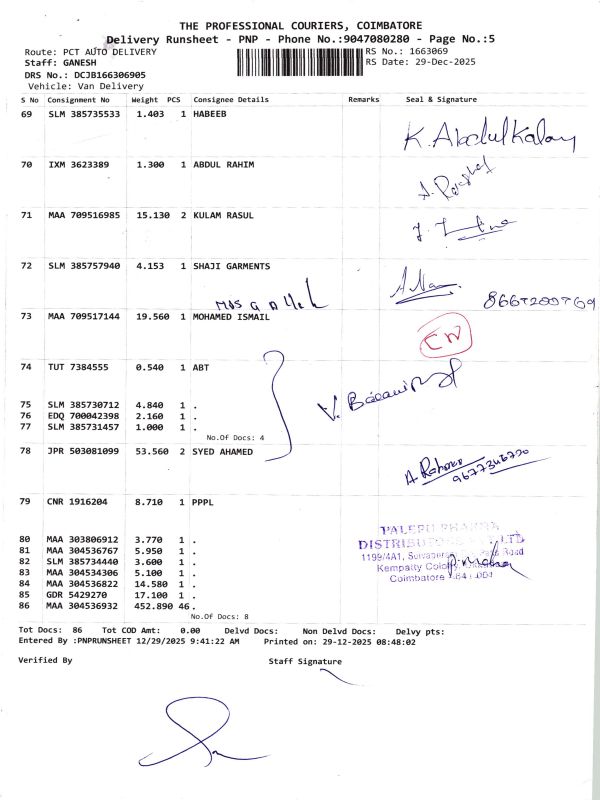 THE PROFESSIONAL COURIERS, COIMBATORE
Delivery Runsheet - PNP - Phone No.:9047080280 - Page No.:5
Route: PCT AUTO DELIVERY RS No.: 1663069
Staff: GANESH RS Date: 29-Dec-2025
DRS No.: DCJB166306905
Vehicle: Van Delivery
S No Consignment No Weight PCS Consignee Details Remarks Seal & Signature
69 SLM 385735533 1.403 1 HABEEB
K. Abdul Kalam
70 IXM 3623389 1.300 1 ABDUL RAHIM
71 MAA 709516985 15.130 2 KULAM RASUL
72 SLM 385757940 4.153 1 SHAJI GARMENTS
73 MAA 709517144 19.560 1 MOHAMED ISMAIL
CN
74 TUT 7384555 0.540 1 ABT
75 SLM 385730712 4.840 1 .
76 EDQ 700042398 2.160 1 .
77 SLM 385731457 1.000 1 .
No.Of Docs: 4
78 JPR 503081099 53.560 2 SYED AHAMED
79 CNR 1916204 8.710 1 PPPL
80 MAA 303806912 3.770 1 .
81 MAA 304536767 5.950 1 .
82 SLM 385734440 3.600 1 .
83 MAA 304534306 5.100 1 .
84 MAA 304536822 14.580 1 .
85 GDR 5429270 17.100 1 .
86 MAA 304536932 452.890 46 .
No.Of Docs: 8
DISTRIBUTORS LTD
1199/4A1, Road
Kempatty Colony,
Coimbatore
Tot Docs: 86 Tot COD Amt: 0.00 Delvd Docs: Non Delvd Docs: Delvy pts:
Entered By :PNPRUNSHEET 12/29/2025 9:41:22 AM Printed on: 29-12-2025 08:48:02
Verified By Staff Signature